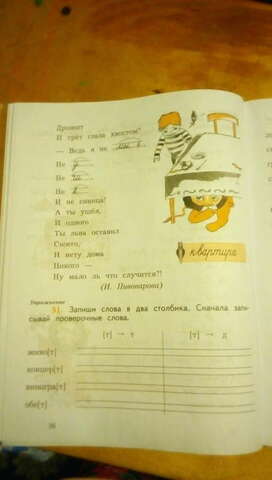 Дрожит
И трёт глаза хвостом!
— Ведь я не
Не
Не
Не
И не синица!
А ты ушёл,
И одного
Ты льва оставил
Снова,
И нету дома
Никого —
Ну мало ль что случится?!
(И. Пивоварова)
квартира
Упражнение
51. Запиши слова в два столбика. Сначала запи-
сывай проверочные слова.
[т] → т
[т] → д
концер[т]
виногра[т]
обе[т]